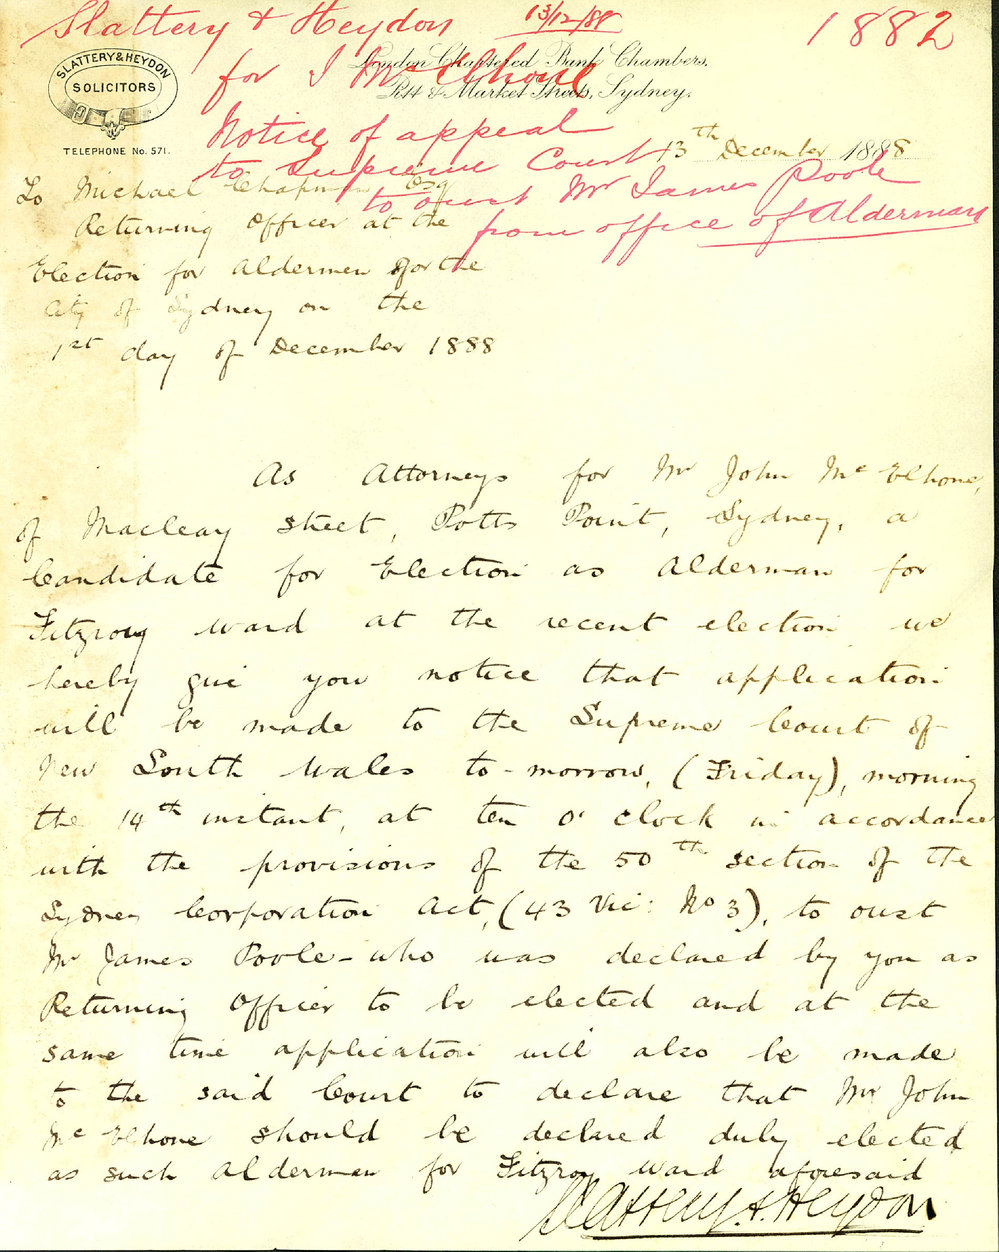 Slattery & Heydon 13/12/88 1882
for J McElhone
Notice of appeal
to Supreme Court
to oust Mr James Poole
from office of Alderman
SLATTERY & HEYDON
SOLICITORS
TELEPHONE No. 571.
London Chartered Bank Chambers,
Pitt & Market Streets, Sydney,
13th December 1888
To Michael Chapman Esq
Returning Officer at the
Election for Aldermen for the
City of Sydney on the
1st day of December 1888
As Attorneys for Mr John Mc Elhone,
of Macleay Street, Potts Point, Sydney, a
Candidate for Election as Alderman for
Fitzroy ward at the recent election we
hereby give you notice that application
will be made to the Supreme Court of
New South Wales to-morrow, (Friday), morning
the 14th instant, at ten o' clock in accordance
with the provisions of the 50th section of the
Sydney Corporation Act, (43 Vic: No 3), to oust
Mr James Poole - who was declared by you as
Returning Officer to be elected and at the
same time application will also be made
to the said Court to declare that Mr John
Mc Elhone should be declared duly elected
as such Alderman for Fitzroy ward aforesaid
Slattery & Heydon